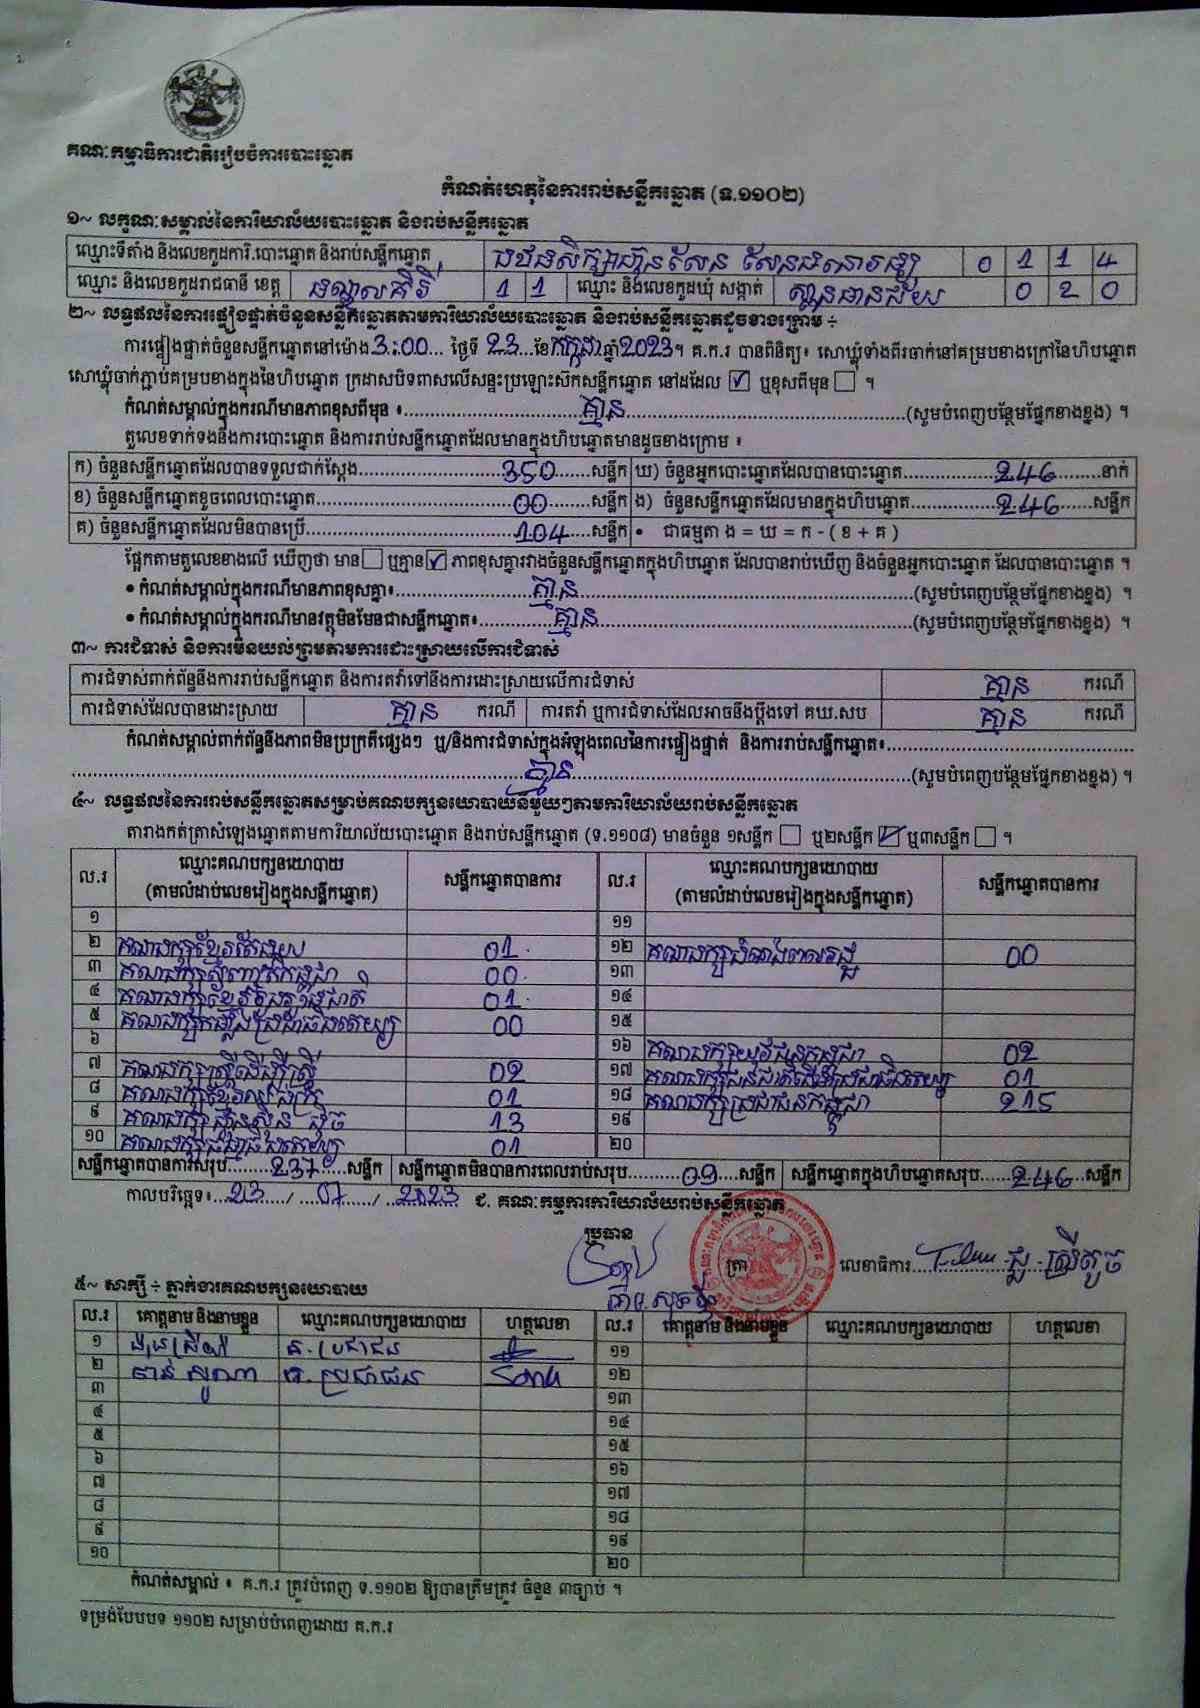 គណៈកម្មាធិការជាតិរៀបចំការបោះឆ្នោត
កំណត់ហេតុនៃការរាប់សន្លឹកឆ្នោត (ទ.១១០២)
១~ លក្ខណៈសម្គាល់នៃការិយាល័យបោះឆ្នោត និងរាប់សន្លឹកឆ្នោត
ឈ្មោះទីតាំង និងលេខកូដការិ.បោះឆ្នោត និងរាប់សន្លឹកឆ្នោត 0 1 1 4
ឈ្មោះ និងលេខកូដរាជធានី ខេត្ត មណ្ឌលគិរី 1 1 ឈ្មោះ និងលេខកូដឃុំ សង្កាត់ ស្ពានមានជ័យ 0 2 0
២~ លទ្ធផលនៃការផ្ទៀងផ្ទាត់ចំនួនសន្លឹកឆ្នោតតាមការិយាល័យបោះឆ្នោត និងរាប់សន្លឹកឆ្នោតដូចខាងក្រោម ÷
ការផ្ទៀងផ្ទាត់ចំនួនសន្លឹកឆ្នោតនៅម៉ោង 3:00 ថ្ងៃទី 23 ខែ កក្កដា ឆ្នាំ 2023។ គ.ក.រ បានពិនិត្យ៖ សោឃ្លុំទាំងពីរចាក់នៅគម្របខាងក្រៅនៃហិបឆ្នោត
សោឃ្លុំចាក់ភ្ជាប់គម្របខាងក្នុងនៃហិបឆ្នោត ក្រដាសបិទពាសលើសន្ទះប្រឡោះស៊កសន្លឹកឆ្នោត នៅដដែល ☑ ឬខុសពីមុន ☐ ។
កំណត់សម្គាល់ក្នុងករណីមានភាពខុសពីមុន ៖ គ្មាន (សូមបំពេញបន្ថែមផ្នែកខាងខ្នង) ។
តួលេខទាក់ទងនឹងការបោះឆ្នោត និងការរាប់សន្លឹកឆ្នោតដែលមានក្នុងហិបឆ្នោតមានដូចខាងក្រោម ៖
ក) ចំនួនសន្លឹកឆ្នោតដែលបានទទួលជាក់ស្តែង 350 សន្លឹក ឃ) ចំនួនអ្នកបោះឆ្នោតដែលបានបោះឆ្នោត 246 នាក់
ខ) ចំនួនសន្លឹកឆ្នោតខូចពេលបោះឆ្នោត 00 សន្លឹក ង) ចំនួនសន្លឹកឆ្នោតដែលមានក្នុងហិបឆ្នោត 246 សន្លឹក
គ) ចំនួនសន្លឹកឆ្នោតដែលមិនបានប្រើ 104 សន្លឹក • ជាធម្មតា ង = ឃ = ក - ( ខ + គ )
ផ្អែកតាមតួលេខខាងលើ ឃើញថា មាន ☐ ឬគ្មាន ☑ ភាពខុសគ្នារវាងចំនួនសន្លឹកឆ្នោតក្នុងហិបឆ្នោត ដែលបានរាប់ឃើញ និងចំនួនអ្នកបោះឆ្នោត ដែលបានបោះឆ្នោត ។
• កំណត់សម្គាល់ក្នុងករណីមានភាពខុសគ្នា៖ គ្មាន (សូមបំពេញបន្ថែមផ្នែកខាងខ្នង) ។
• កំណត់សម្គាល់ក្នុងករណីមានវត្ថុមិនមែនជាសន្លឹកឆ្នោត៖ គ្មាន (សូមបំពេញបន្ថែមផ្នែកខាងខ្នង) ។
៣~ ការជំទាស់ និងការមិនយល់ព្រមតាមការដោះស្រាយលើការជំទាស់
ការជំទាស់ពាក់ព័ន្ធនឹងការរាប់សន្លឹកឆ្នោត និងការតវ៉ាទៅនឹងការដោះស្រាយលើការជំទាស់ គ្មាន ករណី
ការជំទាស់ដែលបានដោះស្រាយ គ្មាន ករណី ការតវ៉ា ឬការជំទាស់ដែលអាចនឹងប្តឹងទៅ គឃ.សប គ្មាន ករណី
កំណត់សម្គាល់ពាក់ព័ន្ធនឹងភាពមិនប្រក្រតីផ្សេងៗ ឬ/និងការជំទាស់ក្នុងអំឡុងពេលនៃការផ្ទៀងផ្ទាត់ និងការរាប់សន្លឹកឆ្នោត៖
គ្មាន (សូមបំពេញបន្ថែមផ្នែកខាងខ្នង) ។
៤~ លទ្ធផលនៃការរាប់សន្លឹកឆ្នោតសម្រាប់គណបក្សនយោបាយនីមួយៗតាមការិយាល័យរាប់សន្លឹកឆ្នោត
តារាងកត់ត្រាសំឡេងឆ្នោតតាមការិយាល័យបោះឆ្នោត និងរាប់សន្លឹកឆ្នោត (ទ.១១០៨) មានចំនួន ១សន្លឹក ☐ ឬ២សន្លឹក ☑ ឬ៣សន្លឹក ☐ ។
ល.រ ឈ្មោះគណបក្សនយោបាយ (តាមលំដាប់លេខរៀងក្នុងសន្លឹកឆ្នោត) សន្លឹកឆ្នោតបានការ ល.រ ឈ្មោះគណបក្សនយោបាយ (តាមលំដាប់លេខរៀងក្នុងសន្លឹកឆ្នោត) សន្លឹកឆ្នោតបានការ
១ ១១
២ គណបក្សខ្មែរតែមួយ 01 ១២ គណបក្សដំណាំងពលរដ្ឋ 00
៣ 00 ១៣
៤ 01 ១៤
៥ 00 ១៥
៦ ១៦ គណបក្សយុវជនកម្ពុជា 02
៧ គណបក្សស្ត្រីដើម្បីស្ត្រី 02 ១៧ 01
៨ 01 ១៨ គណបក្សប្រជាជនកម្ពុជា 215
៩ គណបក្សហ្វ៊ុនស៊ិនប៉ិច 13 ១៩
១០ គណបក្សធម្មាធិបតេយ្យ 01 ២០
សន្លឹកឆ្នោតបានការសរុប 237 សន្លឹក សន្លឹកឆ្នោតមិនបានការពេលរាប់សរុប 09 សន្លឹក សន្លឹកឆ្នោតក្នុងហិបឆ្នោតសរុប 246 សន្លឹក
កាលបរិច្ឆេទ៖ 23 / 07 / 2023 ជ. គណៈកម្មការការិយាល័យរាប់សន្លឹកឆ្នោត
ប្រធាន
ត្រា លេខាធិការ
៥~ សាក្សី ÷ ភ្នាក់ងារគណបក្សនយោបាយ
ល.រ គោត្តនាម និងនាមខ្លួន ឈ្មោះគណបក្សនយោបាយ ហត្ថលេខា ល.រ គោត្តនាម និងនាមខ្លួន ឈ្មោះគណបក្សនយោបាយ ហត្ថលេខា
១ គ. ប្រជាជន ១១
២ គ. ប្រជាជន ១២
៣ ១៣
៤ ១៤
៥ ១៥
៦ ១៦
៧ ១៧
៨ ១៨
៩ ១៩
១០ ២០
កំណត់សម្គាល់ ៖ គ.ក.រ ត្រូវបំពេញ ទ.១១០២ ឱ្យបានត្រឹមត្រូវ ចំនួន ៣ច្បាប់ ។
ទម្រង់បែបបទ ១១០២ សម្រាប់បំពេញដោយ គ.ក.រ